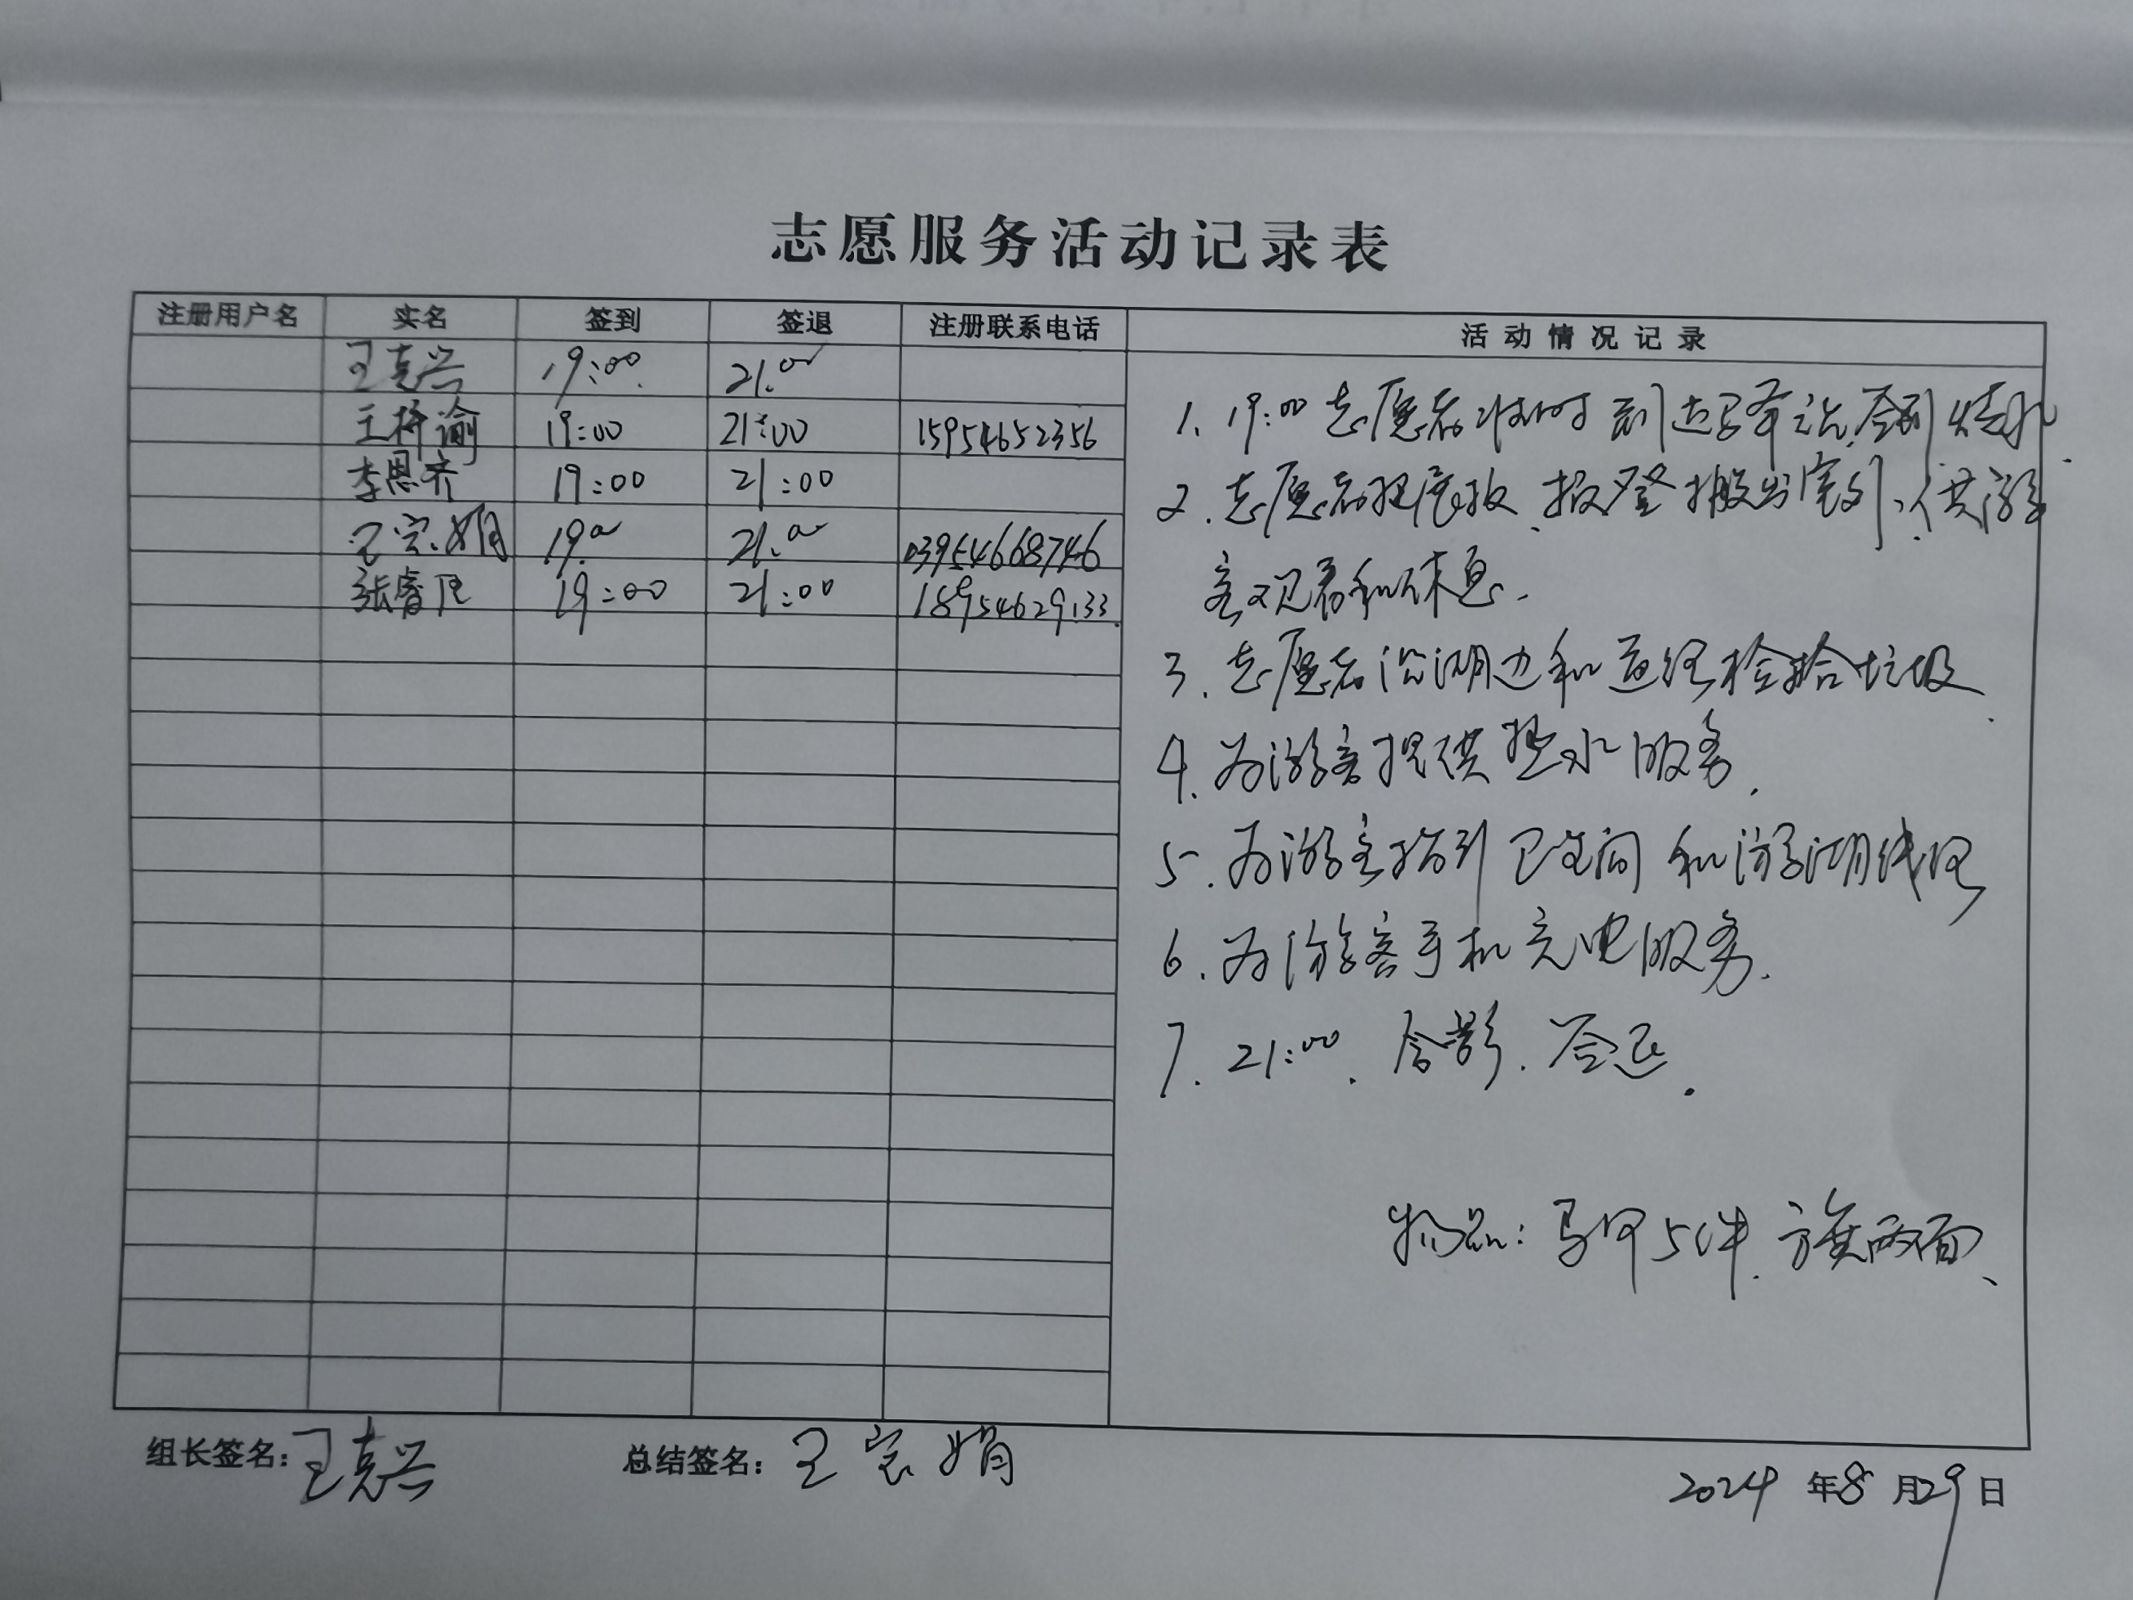 志愿服务活动记录表
注册用户名 实名 签到 签退 注册联系电话 活动情况记录
王克兴 19:00 21:00
王梓谕 19:00 21:00 15954652356
李恩齐 19:00 21:00
王宗娟 19:00 21:00 13954668746
张睿 19:00 21:00 18954629133
1. 19:00 志愿者准时到达 签到
2. 志愿者把展板、报登搬出室外,供游
客观看和休息.
3. 志愿者沿湖边和道径捡拾垃圾.
4. 为游客提供热水服务.
5. 为游客指引卫生间和游湖线径
6. 为游客手机充电服务.
7. 21:00. 合影. 签退.
物品: 马甲5件. 旗两面、
组长签名: 王克兴 总结签名: 王宗娟
2024年8月29日